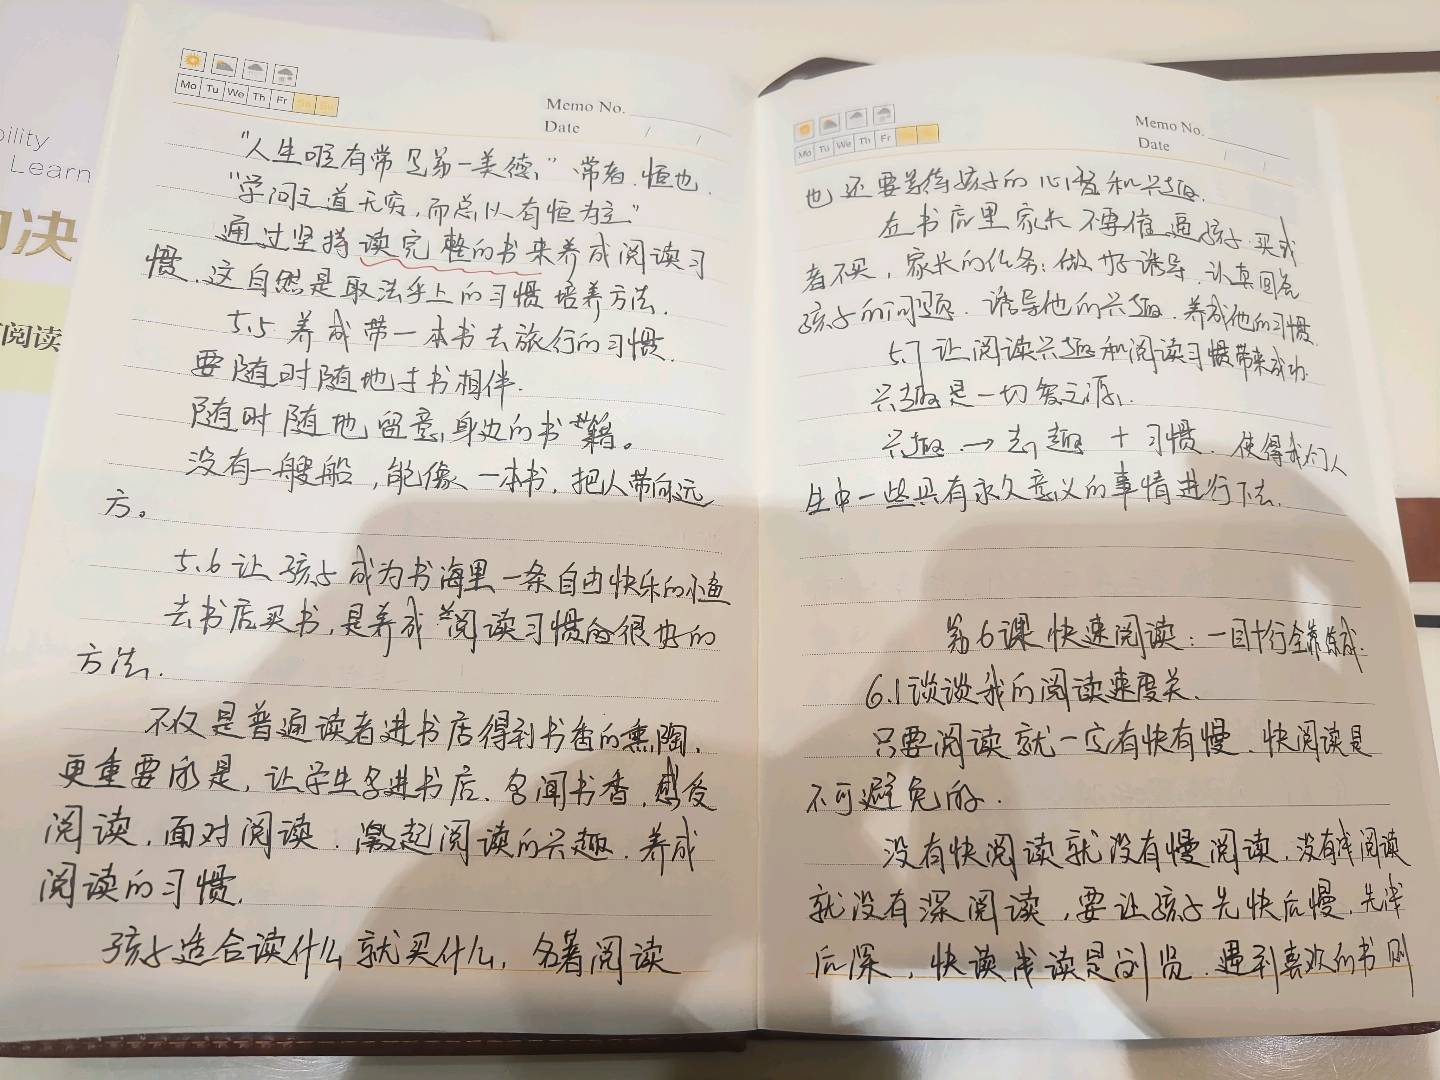 bility
Learn
决
阅读
Mo Tu We Th Fr Sa Su
Memo No.
Date / /
"人生唯有常是第一美德," 常者,恒也.
"学问之道无穷,而总以有恒为主"
通过坚持读完整的书来养成阅读习
惯.这自然是取法乎上的习惯培养方法.
5.5 养成带一本书去旅行的习惯.
要随时随地与书相伴.
随时随地留意身边的书籍。
没有一艘船,能像一本书,把人带向远
方。
5.6 让孩子成为书海里一条自由快乐的小鱼
去书店买书,是养成阅读习惯的很好的
方法.
不仅是普通读者进书店得到书香的熏陶,
更重要的是,让学生多进书店.多闻书香,感受
阅读,面对阅读.激起阅读的兴趣.养成
阅读的习惯.
孩子适合读什么就买什么,名著阅读
Mo Tu We Th Fr
Memo No.
Date / /
也还要等待孩子的心智和兴趣.
在书店里家长不要催逼孩子买或
者不买,家长的任务:做好诱导,认真回答
孩子的问题.诱导他的兴趣.养成他的习惯.
5.7 让阅读兴趣和阅读习惯带来成功
兴趣是一切爱之源.
兴趣→志趣+习惯.使得我们人
生中一些具有永久意义的事情进行下去.
第6课 快速阅读:一目十行全靠练成.
6.1 谈谈我的阅读速度关.
只要阅读就一定有快有慢.快阅读是
不可避免的.
没有快阅读就没有慢阅读,没有浅阅读
就没有深阅读,要让孩子先快后慢.先浅
后深,快读浅读是浏览.遇到喜欢的书则